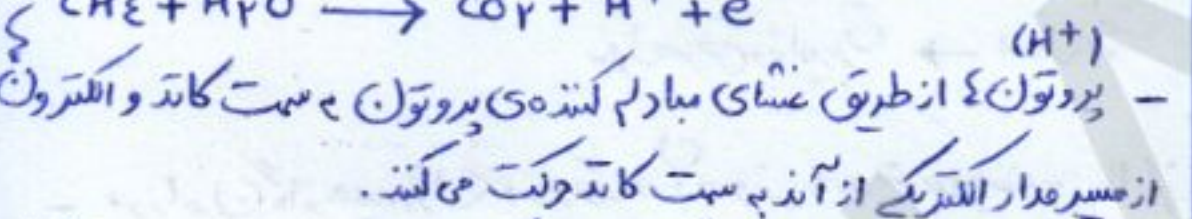 CH٤ + H٢O → CO٢ + H⁺ + e
(H⁺)
- پروتون‌ها از طریق غشای مبادله کننده‌ی پروتون به سمت کاتد و الکترون‌ها
از مسیر مدار الکتریکی از آند به سمت کاتد حرکت می‌کنند.